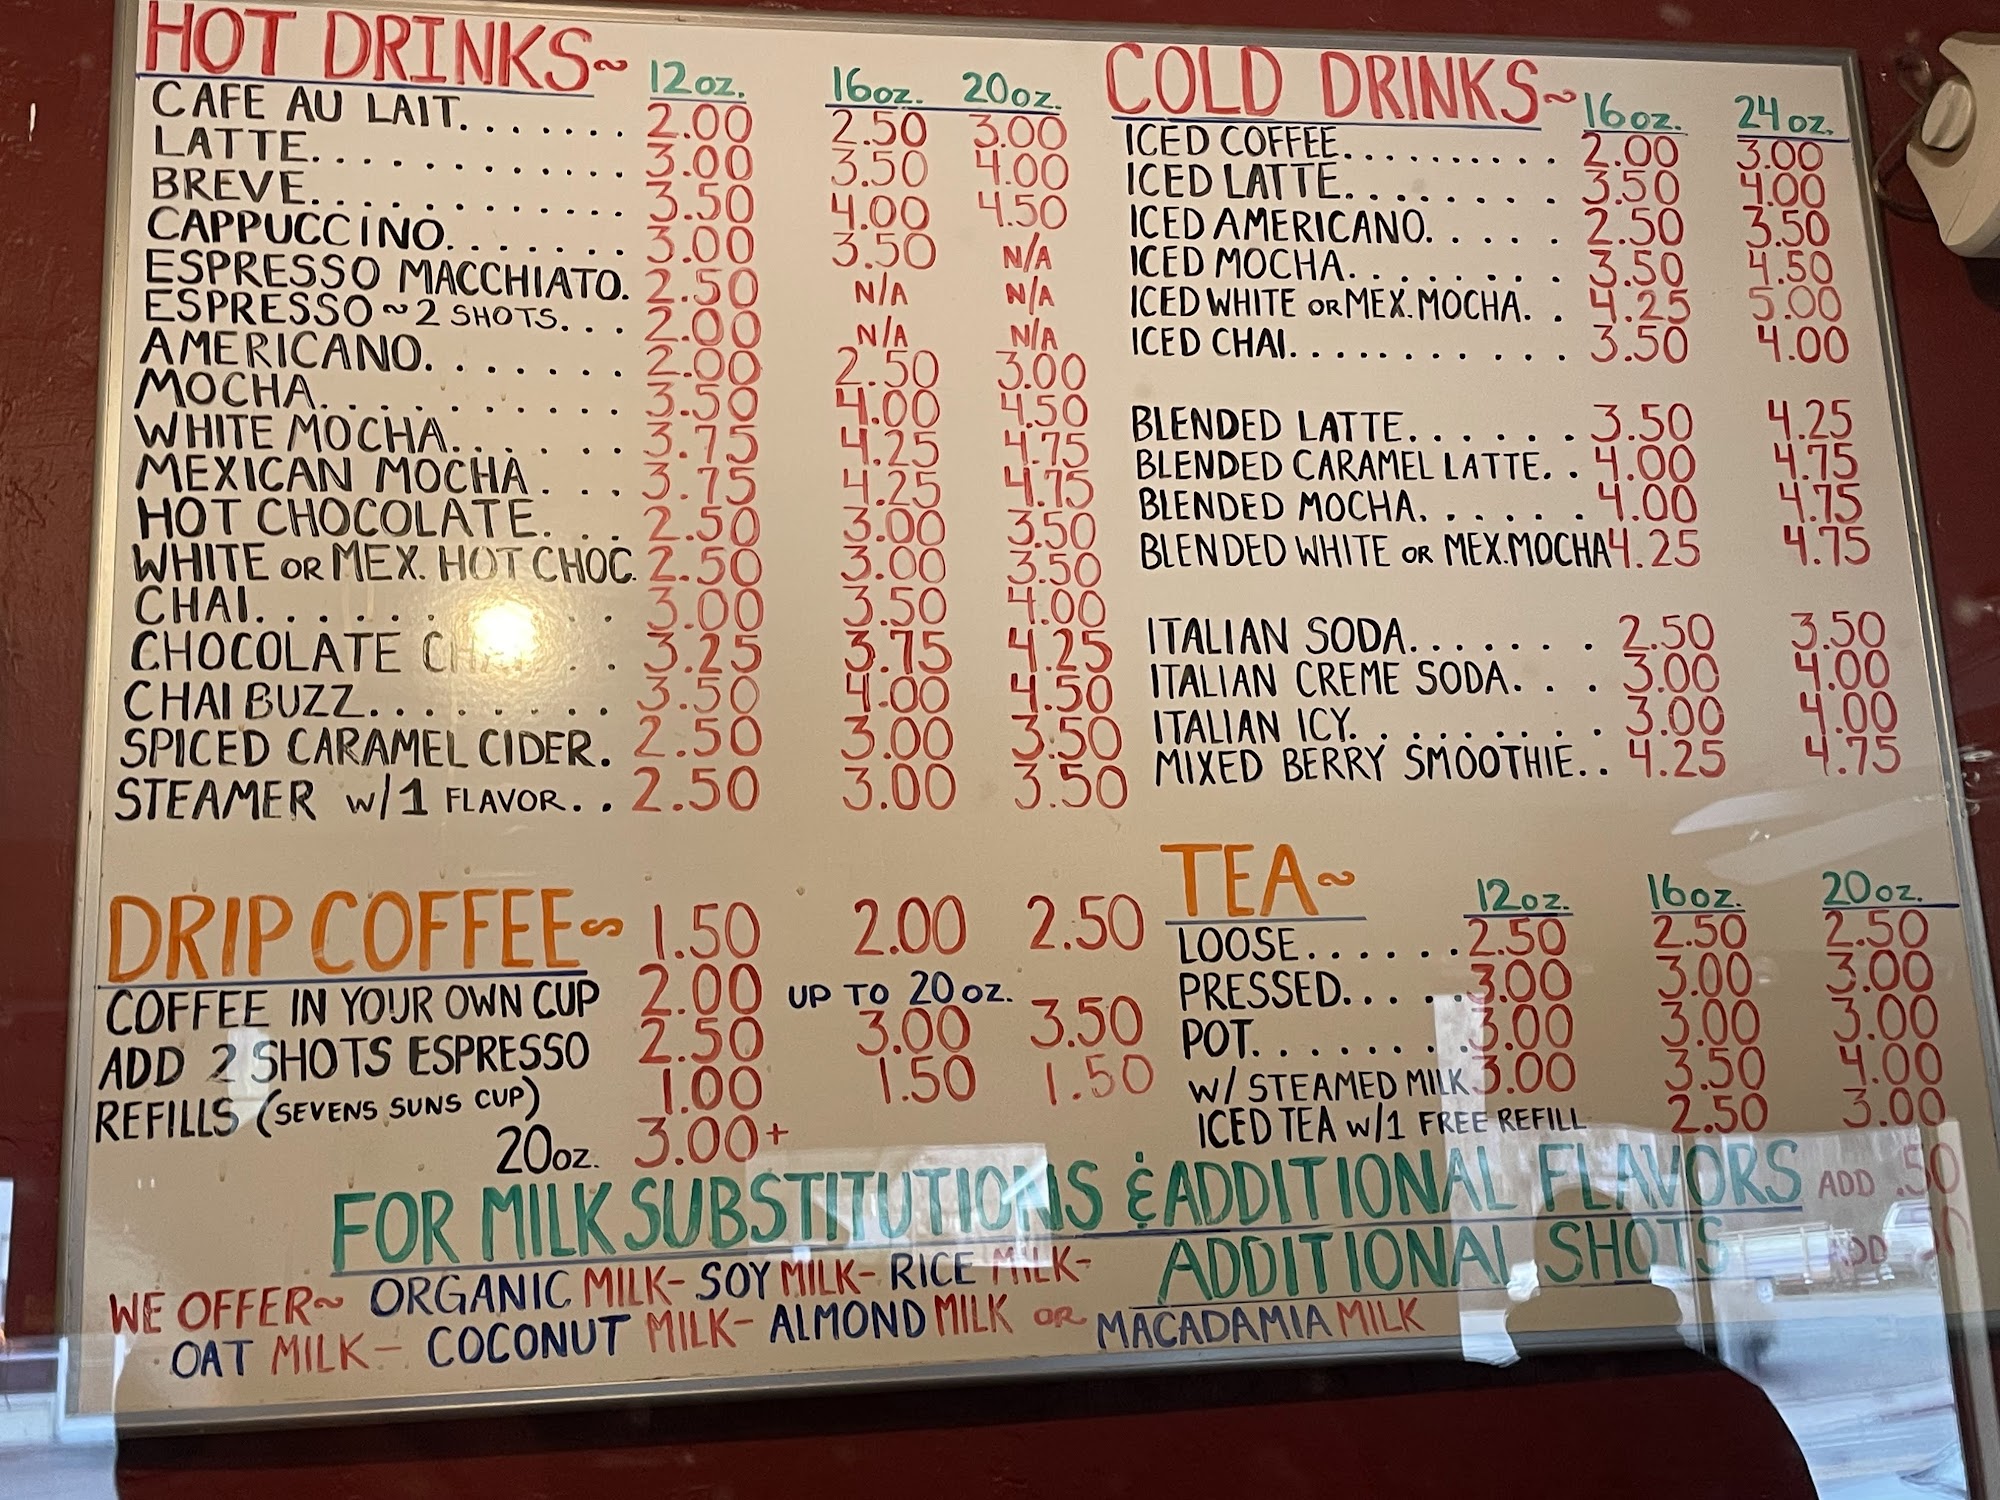 HOT DRINKS~ 12oz. 16oz. 20oz.
CAFE AU LAIT....... 2.00 2.50 3.00
LATTE............ 3.00 3.50 4.00
BREVE............ 3.50 4.00 4.50
CAPPUCCINO....... 3.00 3.50 N/A
ESPRESSO MACCHIATO. 2.50 N/A N/A
ESPRESSO ~ 2 SHOTS... 2.00 N/A N/A
AMERICANO....... 2.00 2.50 3.00
MOCHA.......... 3.50 4.00 4.50
WHITE MOCHA...... 3.75 4.25 4.75
MEXICAN MOCHA... 3.75 4.25 4.75
HOT CHOCOLATE... 2.50 3.00 3.50
WHITE OR MEX. HOT CHOC. 2.50 3.00 3.50
CHAI......... 3.00 3.50 4.00
CHOCOLATE CHAI.. 3.25 3.75 4.25
CHAI BUZZ......... 3.50 4.00 4.50
SPICED CARAMEL CIDER. 2.50 3.00 3.50
STEAMER W/1 FLAVOR.. 2.50 3.00 3.50
DRIP COFFEE~ 1.50 2.00 2.50
COFFEE IN YOUR OWN CUP 2.00 UP TO 20 oz.
ADD 2 SHOTS ESPRESSO 2.50 3.00 3.50
REFILLS (SEVENS SUNS CUP) 1.00 1.50 1.50
20oz. 3.00+
COLD DRINKS~ 16oz. 24oz.
ICED COFFEE.......... 2.00 3.00
ICED LATTE......... 3.50 4.00
ICED AMERICANO..... 2.50 3.50
ICED MOCHA........ 3.50 4.50
ICED WHITE OR MEX. MOCHA.. 4.25 5.00
ICED CHAI........... 3.50 4.00
BLENDED LATTE...... 3.50 4.25
BLENDED CARAMEL LATTE.. 4.00 4.75
BLENDED MOCHA...... 4.00 4.75
BLENDED WHITE OR MEX.MOCHA 4.25 4.75
ITALIAN SODA....... 2.50 3.50
ITALIAN CREME SODA... 3.00 4.00
ITALIAN ICY........ 3.00 4.00
MIXED BERRY SMOOTHIE.. 4.25 4.75
TEA~ 12oz. 16oz. 20oz.
LOOSE...... 2.50 2.50 2.50
PRESSED..... 3.00 3.00 3.00
POT........ 3.00 3.00 3.00
W/ STEAMED MILK 3.00 3.50 4.00
ICED TEA W/1 FREE REFILL 2.50 3.00
FOR MILK SUBSTITUTIONS & ADDITIONAL FLAVORS ADD .50
ADDITIONAL SHOTS ADD
WE OFFER~ ORGANIC MILK- SOY MILK- RICE MILK-
OAT MILK- COCONUT MILK- ALMOND MILK OR MACADAMIA MILK